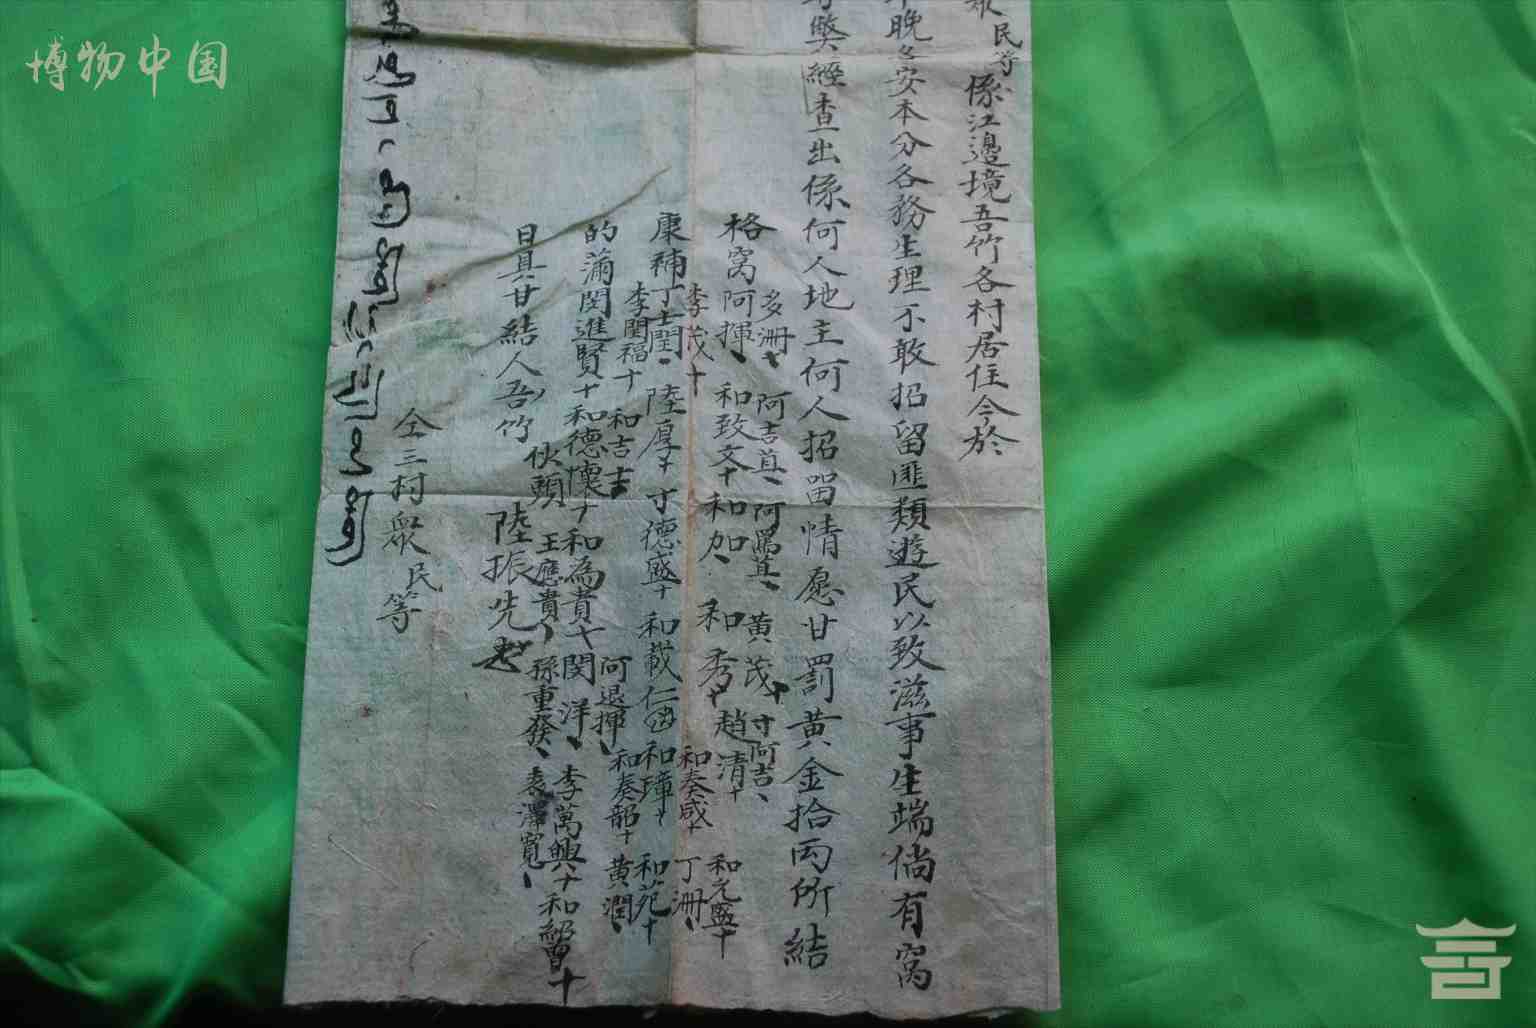 博物中国
眾民等係江邊境吾竹各村居住今於
晚各安本分各務生理不敢招留匪類遊民以致滋事生端倘有窩
弊經查出係何人地主何人招留情愿甘罰黃金拾兩所結
多洲、阿吉苴、阿 苴、黄茂十寸阿吉、
格窩阿揮、和致文十和加、和秀十趙清十和元盛十
李茂十和奏咸十丁洲、
康補丁士閏、陸厚十寸德盛十和載仁 和璋十和苑十
李閏福十和吉吉阿退揮、和奏韶十黄潤、
的滿閔進賢十和德懷十和為貴十閔洋、李萬興十和紹曾十
日具甘結人吾竹伙頭王應貴、孫重發、袁澤寬、
陸振先
仝三村眾民等